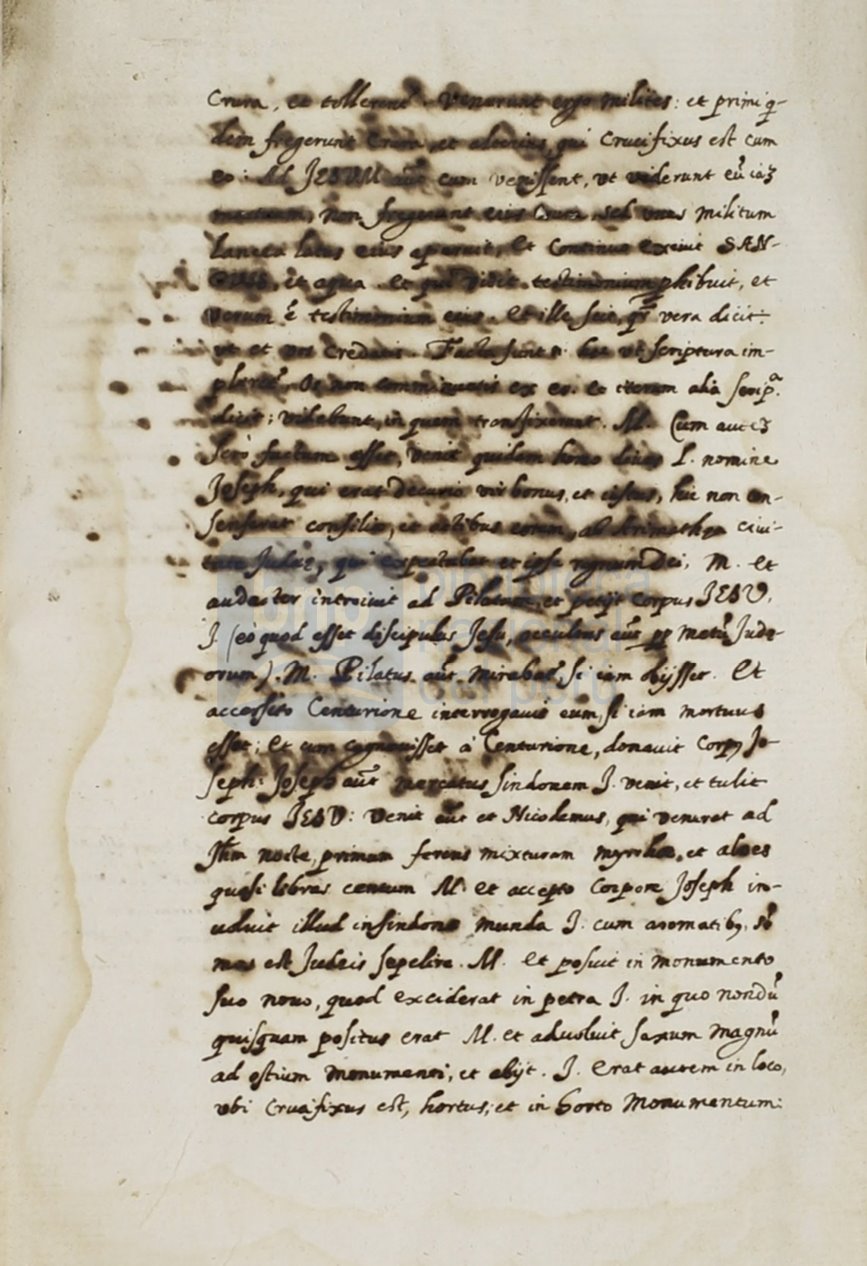 Crura, et tollerent. Venerunt ergo milites: et primi q̃-
dem fregerunt Crura, et alterius, qui Crucifixus est cum
eo: Ad JESUM aũt cum venissent, vt viderunt eũ iaʒ
mortuum, non fregerunt eius Crura sed vnus militum
lancea latus eius aperuit, Et continuo exiuit SAN-
GUIS, et aqua. et qui vidit, testimonium phibuit, et
verum ẽ testimonium eius. Et ille scit, qꝛ vera dicit:
vt et vos Credatis. Facta sunt n. hec vt scriptura im-
pleret̃. Os non comminuetis ex eo. et iterum alia scrip.ª
dicit; videbunt, in quem transfixerunt. M. Cum auteʒ
serò factum esset, venit quidem homo diues L. nomine
Joseph, qui erat decurio vir bonus, et iustus, hic non con-
senserat consilio, et actibus eorum, ab Arimathea ciui-
tate Judeę, qui expectabat et ipse regnum Dei, M. et
audacter introiuit ad Pilatum, et petijt corpus JESU.
J (eò quod esset discipulus Jesu, occultus aũt pp metũ Jude-
orum). M. Pilatus aũt mirabat̃, si iam obijsset. Et
accersito Centurione interrogauit eum, si iam mortuus
esset; Et cum cognouisset à Centurione, donauit Corpꝰ Jo-
seph: Joseph aũt mercatus sindonem J. venit, et tulit
corpus JESU: venit aũt et Nicodemus, qui venerat ad
Jhm nocte, primum ferens mixturam myrrhæ, et aloes
quasi libras centum M. et accepto Corpore Joseph in-
uoluit illud in sindone munda J. cum aromatibꝫ, sẽ
mos est Judeis sepelire. M. et posuit in monumento
suo nouo, quod exciderat in petra J. in quo nondũ
quisquam positus erat M. et aduoluit saxum magnũ
ad ostium monumenti, et abijt. J. Erat autem in loco,
vbi Crucifixus est, hortus, et in horto Monumentum: